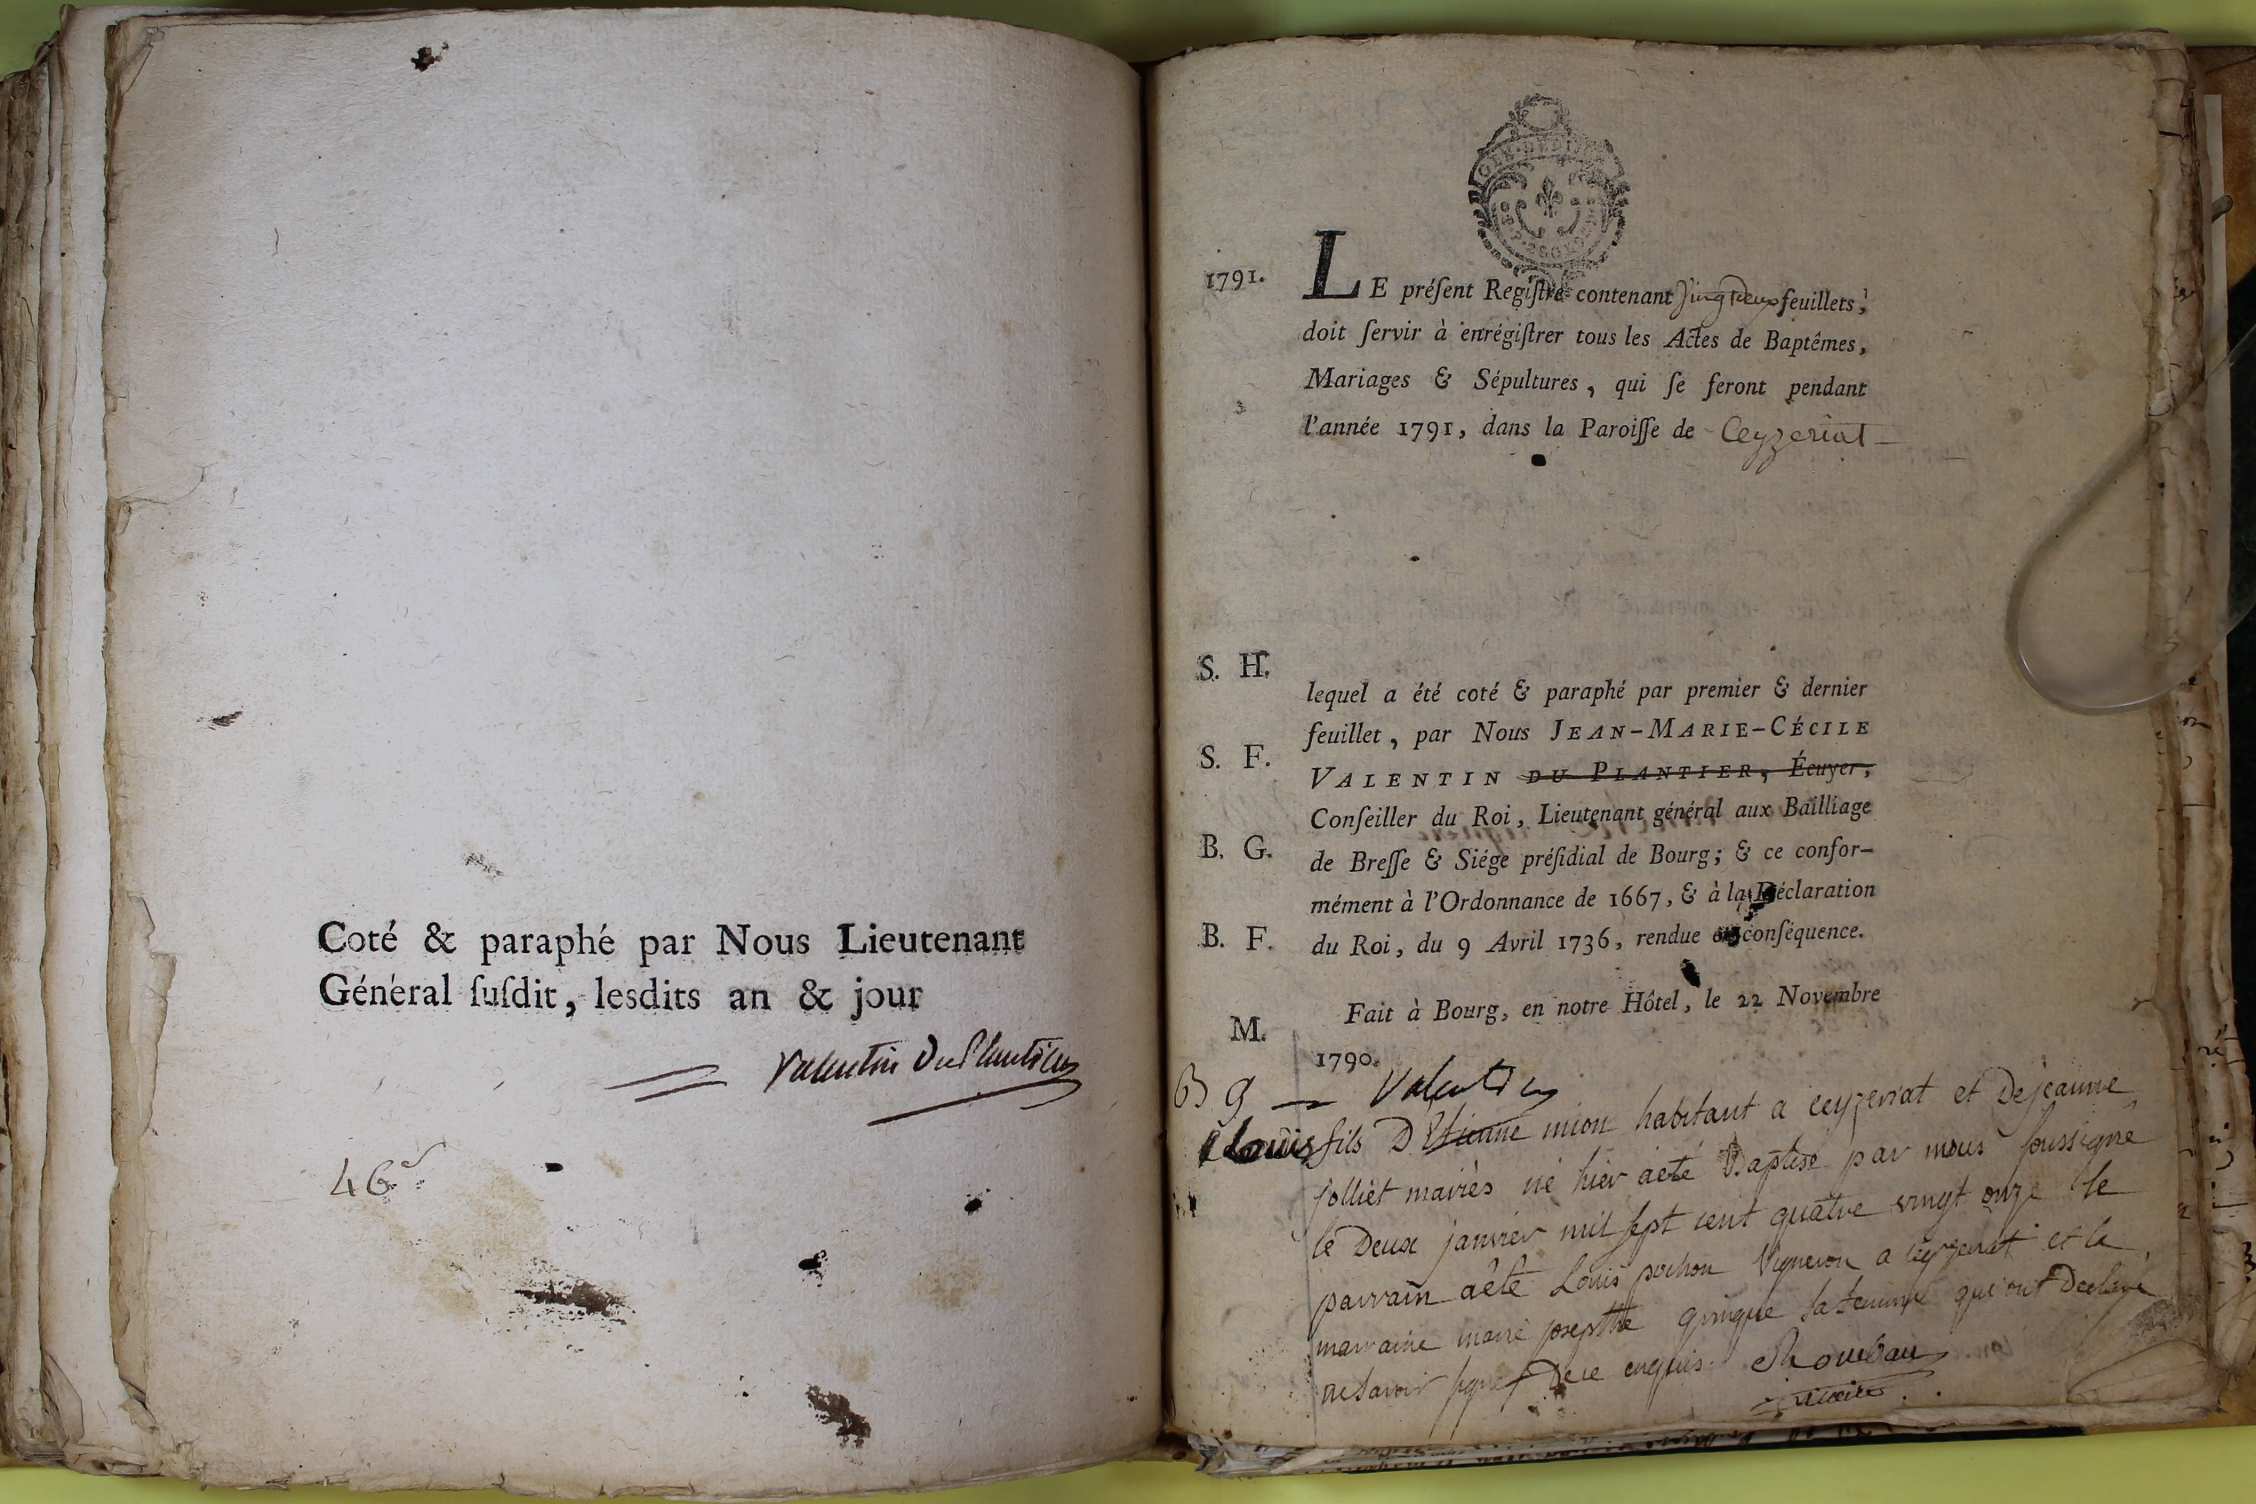 Coté & paraphé par Nous Lieutenant
Général ſuſdit, lesdits an & jour
Valentin DuPlantier
46
1791.
LE préſent Regiſtre contenant vingtdeux feuillets,
doit ſervir à enrégiſtrer tous les Actes de Baptêmes,
Mariages & Sépultures, qui ſe feront pendant
l'année 1791, dans la Paroiſſe de Ceyzeriat
S. H.
lequel a été coté & paraphé par premier & dernier
feuillet, par Nous JEAN-MARIE-CÉCILE
S. F.
VALENTIN DU PLANTIER, Écuyer,
Conſeiller du Roi, Lieutenant général aux Bailliage
B. G.
de Breſſe & Siége préſidial de Bourg; & ce confor-
mément à l'Ordonnance de 1667, & à la Déclaration
B. F.
du Roi, du 9 Avril 1736, rendue en conſéquence.
Fait à Bourg, en notre Hôtel, le 22 Novembre
M.
1790.
B g Valentin
Louis fils D'Etienne mion habitant a ceyzeriat et De jeanne
jolliet mariès né hier aeté Baptisé par nous soussigné
le Deux janvier mil sept cent quatre vingt onze le
parrain aêté Louis pochon Vigneron a ceyzeriat et la
marraine marie josepthe gringue sa femme qui ont Declaré
ne savoir signer De ce enquis.
vicaire